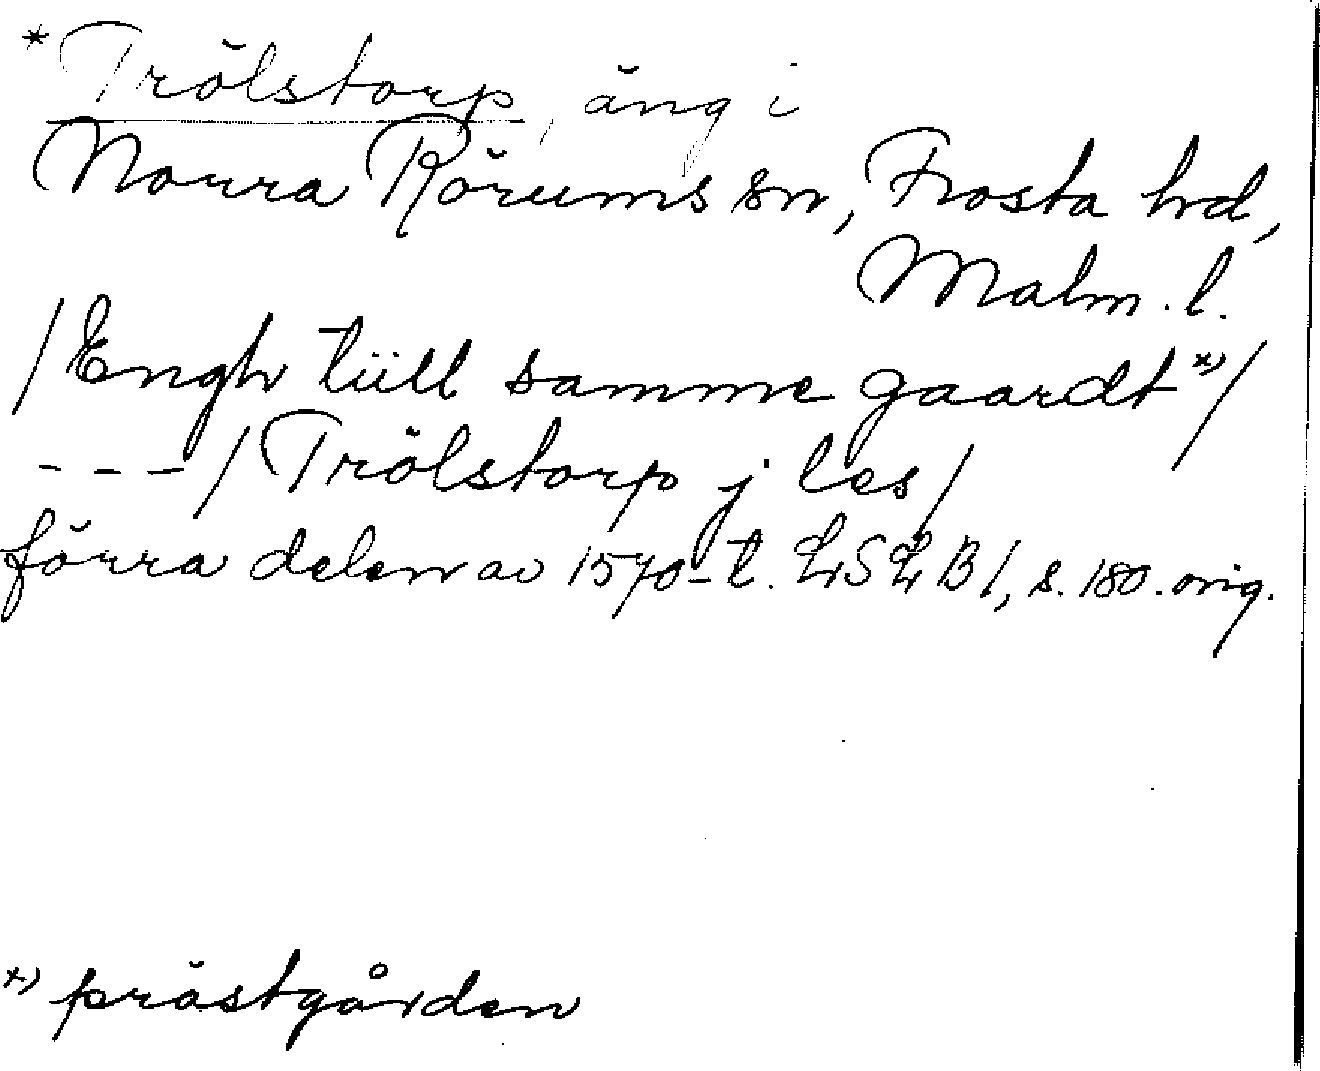 * Trölstorp, äng i
Norra Rörums sn, Frosta hd,
Malm. l.
/Engh tiill samme gaardt*)/
---/Trölstorp j les/
förra delen av 1570-t. LSLB 1, s. 180. orig.
*) prästgården